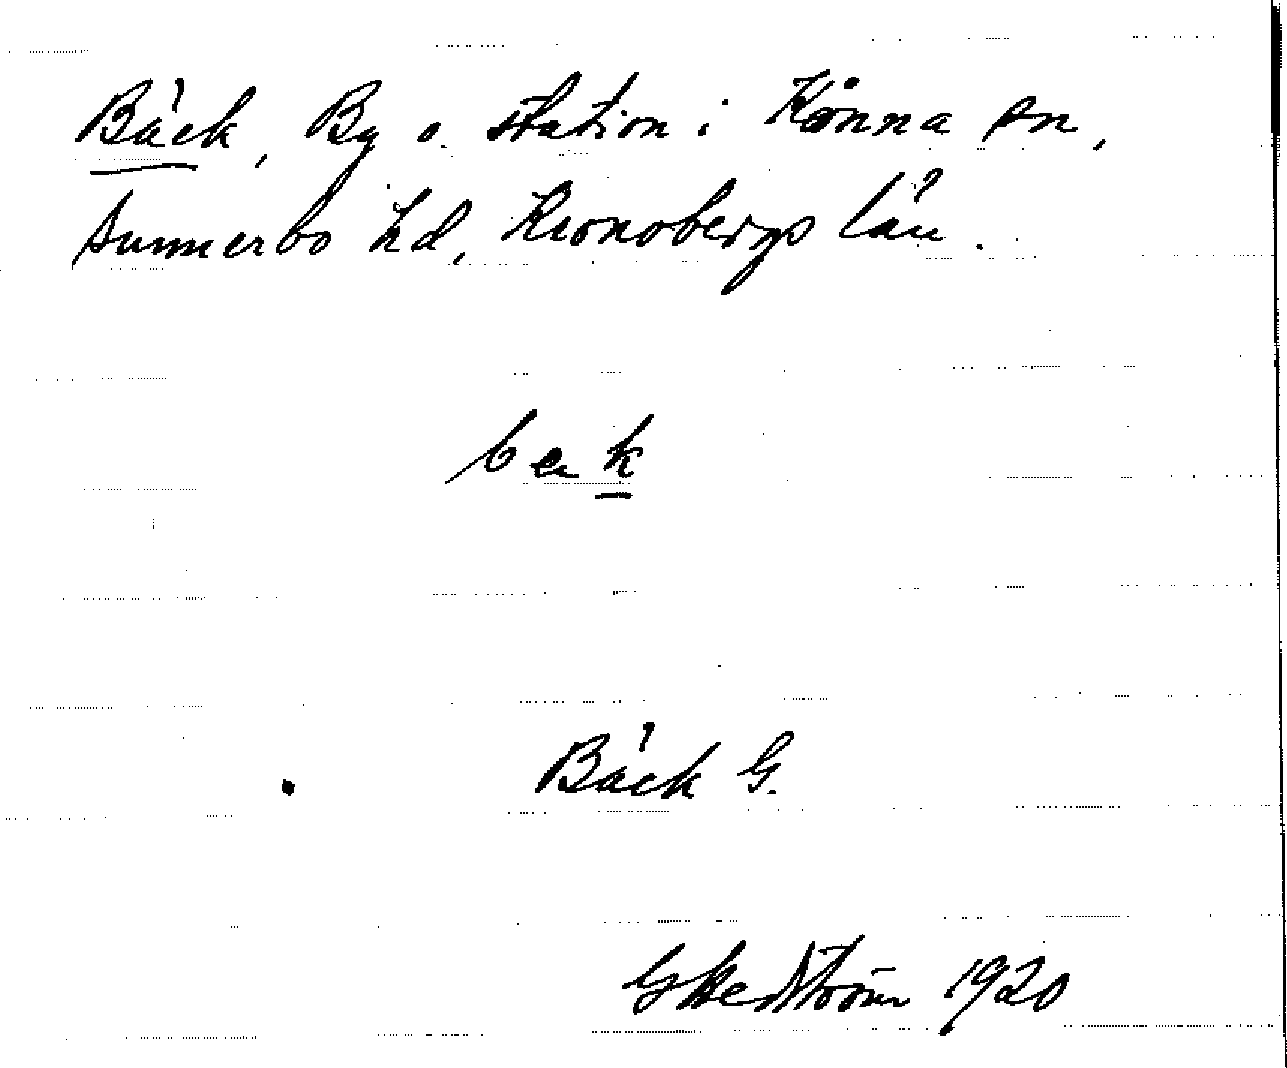 Bäck, By o. station i Kånna sn,
Sunnerbo hd, Kronobergs län.
bek
Bäck G.
G Hedström 1920